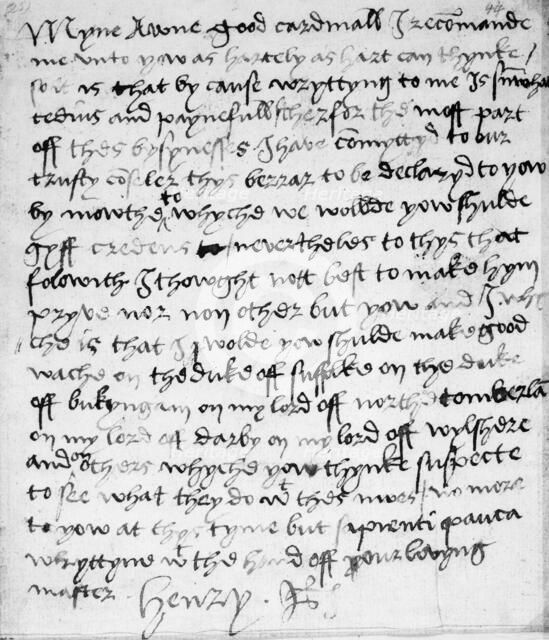 Myne Awne good cardinall I recomande
me unto yow as hartely as hart can thynke
so it is that by cause wryttyng to me is sumwhat
tedius and paynefull therfor the most part
off thes bysynesses I have commyttyd to our
trusty conseler thys berrar to be declaryd to yow
by mowthe to whyche we wolde yow shulde
gyff credens nevertheles to thys that
folowith I thowght nott best to make hym
pryve nor non other but yow and I whi
che is that I wolde yow shulde make good
wache on the duke off suffolke on the duke
off bukyngam on my lord off northeomberland
on my lord off darby on my lord off wylshere
and on others whyche yow thynke suspecte
to see what they do wt thes nwes no more
to yow at thys tyme but sapienti pauca
wryttyne wt the hand off your lovyng
master Henry R